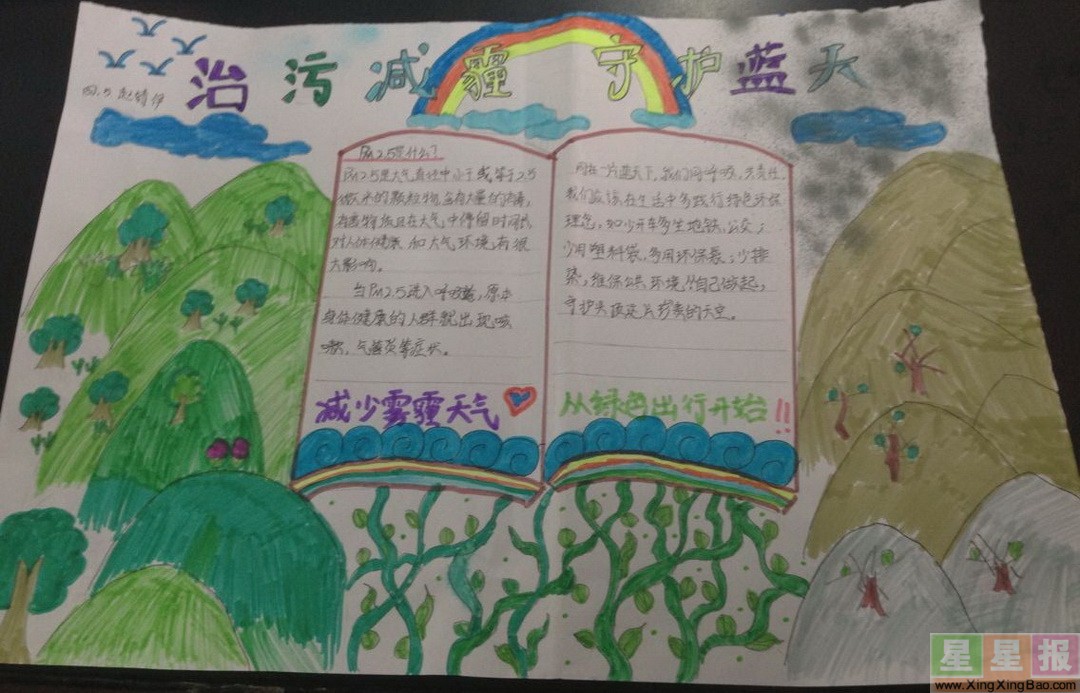 治污减霾 守护蓝天
四.5
PM2.5是什么?
PM2.5是大气直径中小于或等于2.5
微米的颗粒物,含有大量的有毒,
有害物质且在大气中停留时间长,
对人体健康和大气环境有很
大影响。
当PM2.5进入呼吸道,原本
身体健康的人群就出现咳
嗽、气管炎等症状。
减少雾霾天气
同在一片蓝天下,我们同呼吸,共责任,
我们应该在生活中多践行绿色环保
理念,如少开车多坐地铁,公交;
少用塑料袋,多用环保袋;少
维保公共环境,从自己做起,
守护头顶这片的天空。
从绿色出行开始!!
星星报
www.XingXingBao.com